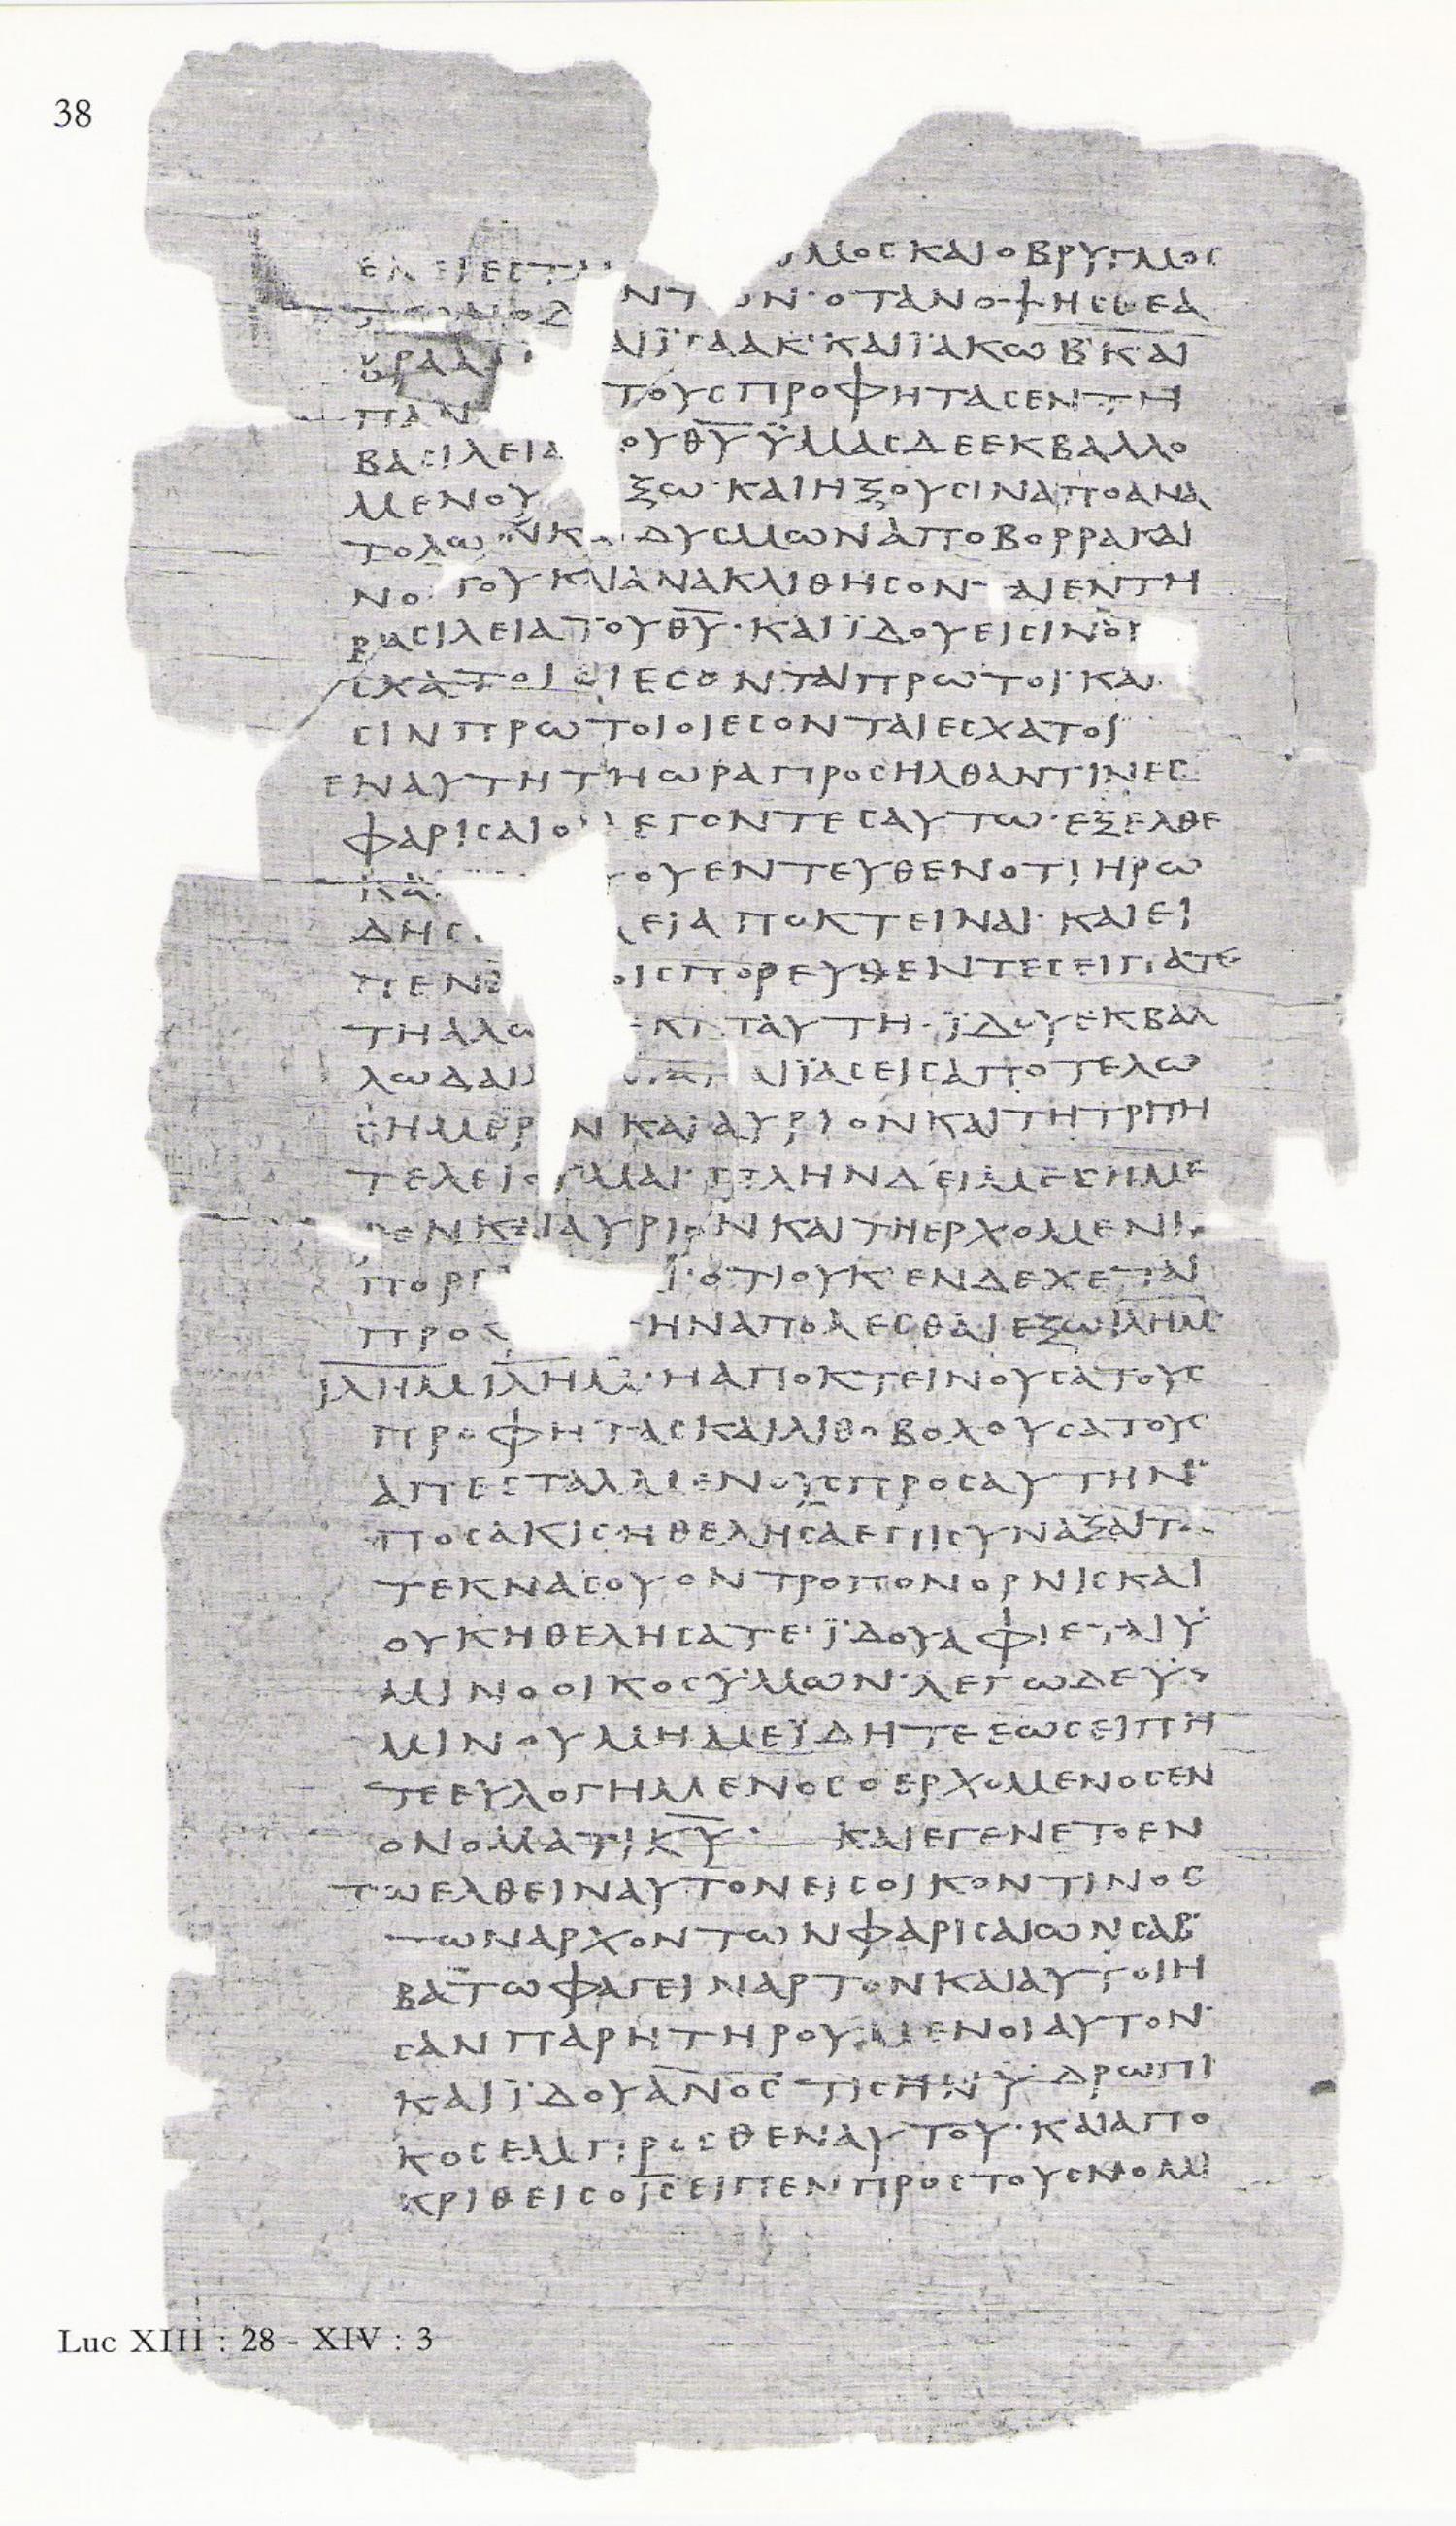 38
ΕΚΕΙ ΕΣΤΑΙ ΜΟΣ ΚΑΙ Ο ΒΡΥΓΜΟΣ
ΝΤΩΝ· ΟΤΑΝ ΟΨΗΣΘΕ Α
ΒΡΑΑΜ ΑΙ ΪΣΑΑΚ· ΚΑΙ ΪΑΚΩΒ· ΚΑΙ
ΠΑΝ ΤΟΥΣ ΠΡΟΦΗΤΑΣ ΕΝ ΤΗ
ΒΑΣΙΛΕΙΑ ΟΥ ΘΥ ΫΜΑΣ ΔΕ ΕΚΒΑΛΛΟ
ΜΕΝΟΥ ΞΩ· ΚΑΙ ΗΞΟΥΣΙΝ ΑΠΟ ΑΝΑ
ΤΟΛΩΝ ΚΑΙ ΔΥΣΜΩΝ ΑΠΟ ΒΟΡΡΑ ΚΑΙ
ΝΟΤΟΥ ΚΑΙ ΑΝΑΚΛΙΘΗΣΟΝΤΑΙ ΕΝ ΤΗ
ΒΑΣΙΛΕΙΑ ΤΟΥ ΘΥ· ΚΑΙ ΪΔΟΥ ΕΙΣΙΝ ΟΙ
ΣΧΑΤΟΙ ΟΙ ΕΣΟΝΤΑΙ ΠΡΩΤΟΙ· ΚΑΙ
ΣΙΝ ΠΡΩΤΟΙ ΟΙ ΕΣΟΝΤΑΙ ΕΣΧΑΤΟΙ
ΕΝ ΑΥΤΗ ΤΗ ΩΡΑ ΠΡΟΣΗΛΘΑΝ ΤΙΝΕΣ
ΦΑΡΙΣΑΙΟΙ ΛΕΓΟΝΤΕΣ ΑΥΤΩ· ΕΞΕΛΘΕ
ΚΑΙ ΟΥ ΕΝΤΕΥΘΕΝ ΟΤΙ ΗΡΩ
ΔΗΣ ΛΕΙ ΑΠΟΚΤΕΙΝΑΙ· ΚΑΙ ΕΙ
ΠΕΝ ΟΙΣ ΠΟΡΕΥΘΕΝΤΕΣ ΕΙΠΑΤΕ
ΤΗ ΑΛΩ ΕΚΙ ΤΑΥΤΗ· ΪΔΟΥ ΕΚΒΑΛ
ΛΩ ΔΑΙ ΑΙ ΪΑΣΕΙΣ ΑΠΟΤΕΛΩ
ΣΗΜΕΡΟΝ ΚΑΙ ΑΥΡΙΟΝ ΚΑΙ ΤΗ ΤΡΙΤΗ
ΤΕΛΕΙΟΥΜΑΙ· ΠΛΗΝ ΔΕΙ ΜΕ ΣΗΜΕ
ΡΟΝ ΚΑΙ ΑΥΡΙΟΝ ΚΑΙ ΤΗ ΕΡΧΟΜΕΝΗ
ΠΟΡΕ Ι· ΟΤΙ ΟΥΚ ΕΝΔΕΧΕΤΑΙ
ΠΡΟΦ ΗΝ ΑΠΟΛΕΣΘΑΙ ΕΞΩ ΙΛΗΜ
ΙΛΗΜ ΙΛΗΜ· Η ΑΠΟΚΤΕΙΝΟΥΣΑ ΤΟΥΣ
ΠΡΟΦΗΤΑΣ ΚΑΙ ΛΙΘΟΒΟΛΟΥΣΑ ΤΟΥΣ
ΑΠΕΣΤΑΛΜΕΝΟΥΣ ΠΡΟΣ ΑΥΤΗΝ·
ΠΟΣΑΚΙΣ ΗΘΕΛΗΣΑ ΕΠΙΣΥΝΑΞΑΙ ΤΑ
ΤΕΚΝΑ ΣΟΥ ΟΝ ΤΡΟΠΟΝ ΟΡΝΙΣ ΚΑΙ
ΟΥΚ ΗΘΕΛΗΣΑΤΕ· ΪΔΟΥ ΑΦΙΕΤΑΙ Ϋ
ΜΙΝ Ο ΟΙΚΟΣ ΫΜΩΝ· ΛΕΓΩ ΔΕ Ϋ
ΜΙΝ ΟΥ ΜΗ ΜΕ ΪΔΗΤΕ ΕΩΣ ΕΙΠΗ
ΤΕ ΕΥΛΟΓΗΜΕΝΟΣ Ο ΕΡΧΟΜΕΝΟΣ ΕΝ
ΟΝΟΜΑΤΙ ΚΥ· ΚΑΙ ΕΓΕΝΕΤΟ ΕΝ
ΤΩ ΕΛΘΕΙΝ ΑΥΤΟΝ ΕΙΣ ΟΙΚΟΝ ΤΙΝΟΣ
ΤΩΝ ΑΡΧΟΝΤΩΝ ΦΑΡΙΣΑΙΩΝ ΣΑΒ
ΒΑΤΩ ΦΑΓΕΙΝ ΑΡΤΟΝ ΚΑΙ ΑΥΤΟΙ Η
ΣΑΝ ΠΑΡΗΤΗΡΟΥΜΕΝΟΙ ΑΥΤΟΝ·
ΚΑΙ ΪΔΟΥ ΑΝΟΣ ΤΙΣ ΗΝ ΫΔΡΩΠΙ
ΚΟΣ ΕΜΠΡΟΣΘΕΝ ΑΥΤΟΥ· ΚΑΙ ΑΠΟ
ΚΡΙΘΕΙΣ Ο ΙΣ ΕΙΠΕΝ ΠΡΟΣ ΤΟΥΣ ΝΟΜΙ
Luc XIII : 28 - XIV : 3